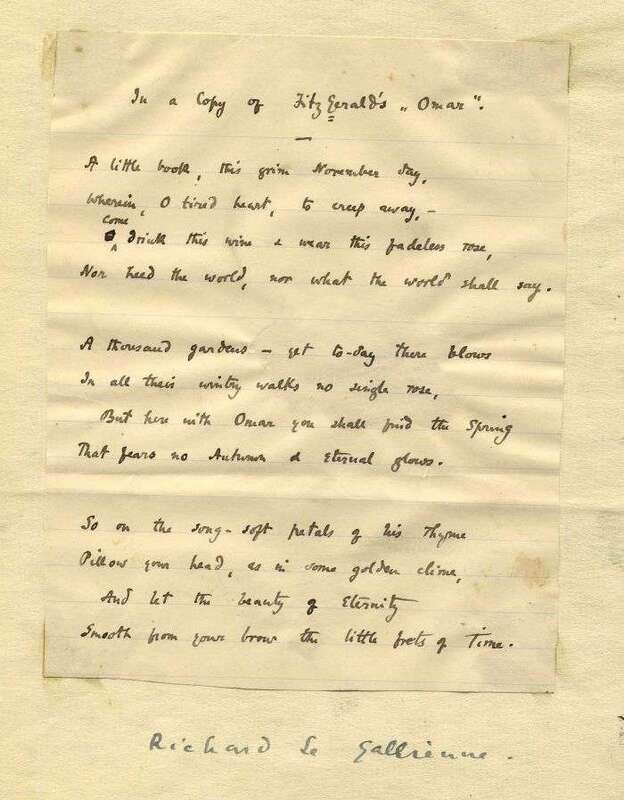 In a Copy of FitzGerald's „Omar".
A little book, this grim November day,
Wherein, O tired heart, to creep away, –
Come
drink this wine & wear this fadeless rose,
Nor heed the world, nor what the world shall say.
A thousand gardens – yet to-day there blows
In all their wintry walks no single rose,
But here with Omar you shall find the Spring
That fears no Autumn & eternal glows.
So on the song-soft petals of his rhyme
Pillow your head, as in some golden clime,
And let the beauty of Eternity
Smooth from your brow the little frets of Time.
Richard Le Gallienne.